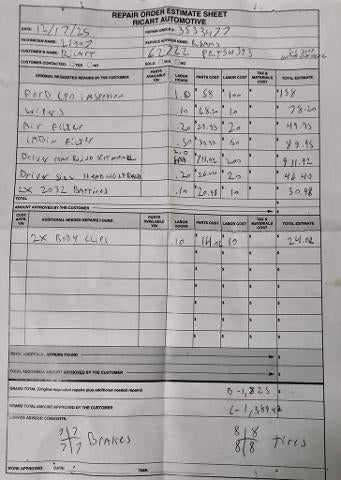 REPAIR ORDER ESTIMATE SHEET
RICART AUTOMOTIVE
DATE: 12/17/25 REPAIR ORDER #: 3533477
TECHNICIAN NAME: SERVICE ADVISOR NAME:
CUSTOMER'S NAME: Ricart 62722
CUSTOMER CONTACTED: YES NO SOLD: YES NO
ORIGINAL REQUESTED REPAIRS BY THE CUSTOMER PARTS AVAILABLE Y/N LABOR HOURS PARTS COST LABOR COST TAX & MATERIALS COST TOTAL ESTIMATE
Ford CPO inspection 1.0 $ 58 100 $158
Wipers .10 $ 68.20 10 $ 78.20
Air Filter .20 $ 29.95 20 $ 49.95
CABIN Filter .50 $ 39.95 50 $ 89.95
Driver 2.0 $ 711.92 200 $ 911.92
Driver Side .20 20 $ 46.40
2X 2032 Batteries .10 $ 20.98 10 $ 30.98
TOTAL
AMOUNT APPROVED BY THE CUSTOMER
CUST. APPR. Y/N ADDITIONAL NEEDED REPAIRS FOUND PARTS AVAILABLE Y/N LABOR HOURS PARTS COST LABOR COST TAX & MATERIALS COST TOTAL ESTIMATE
2X BODY CLIPS .10 $ 14.02 10 $ 24.02
TOTAL ADDITIONAL REPAIRS FOUND $
TOTAL ADDITIONAL AMOUNT APPROVED BY THE CUSTOMER $
GRAND TOTAL (Original requested repairs plus additional needed repairs) 0-1,825 $
GRAND TOTAL AMOUNT APPROVED BY THE CUSTOMER $
SERVICE ADVISOR COMMENTS:
7 7 8 8
7 7 Brakes 8 8 Tires
WORK APPROVED: DATE: TIME: